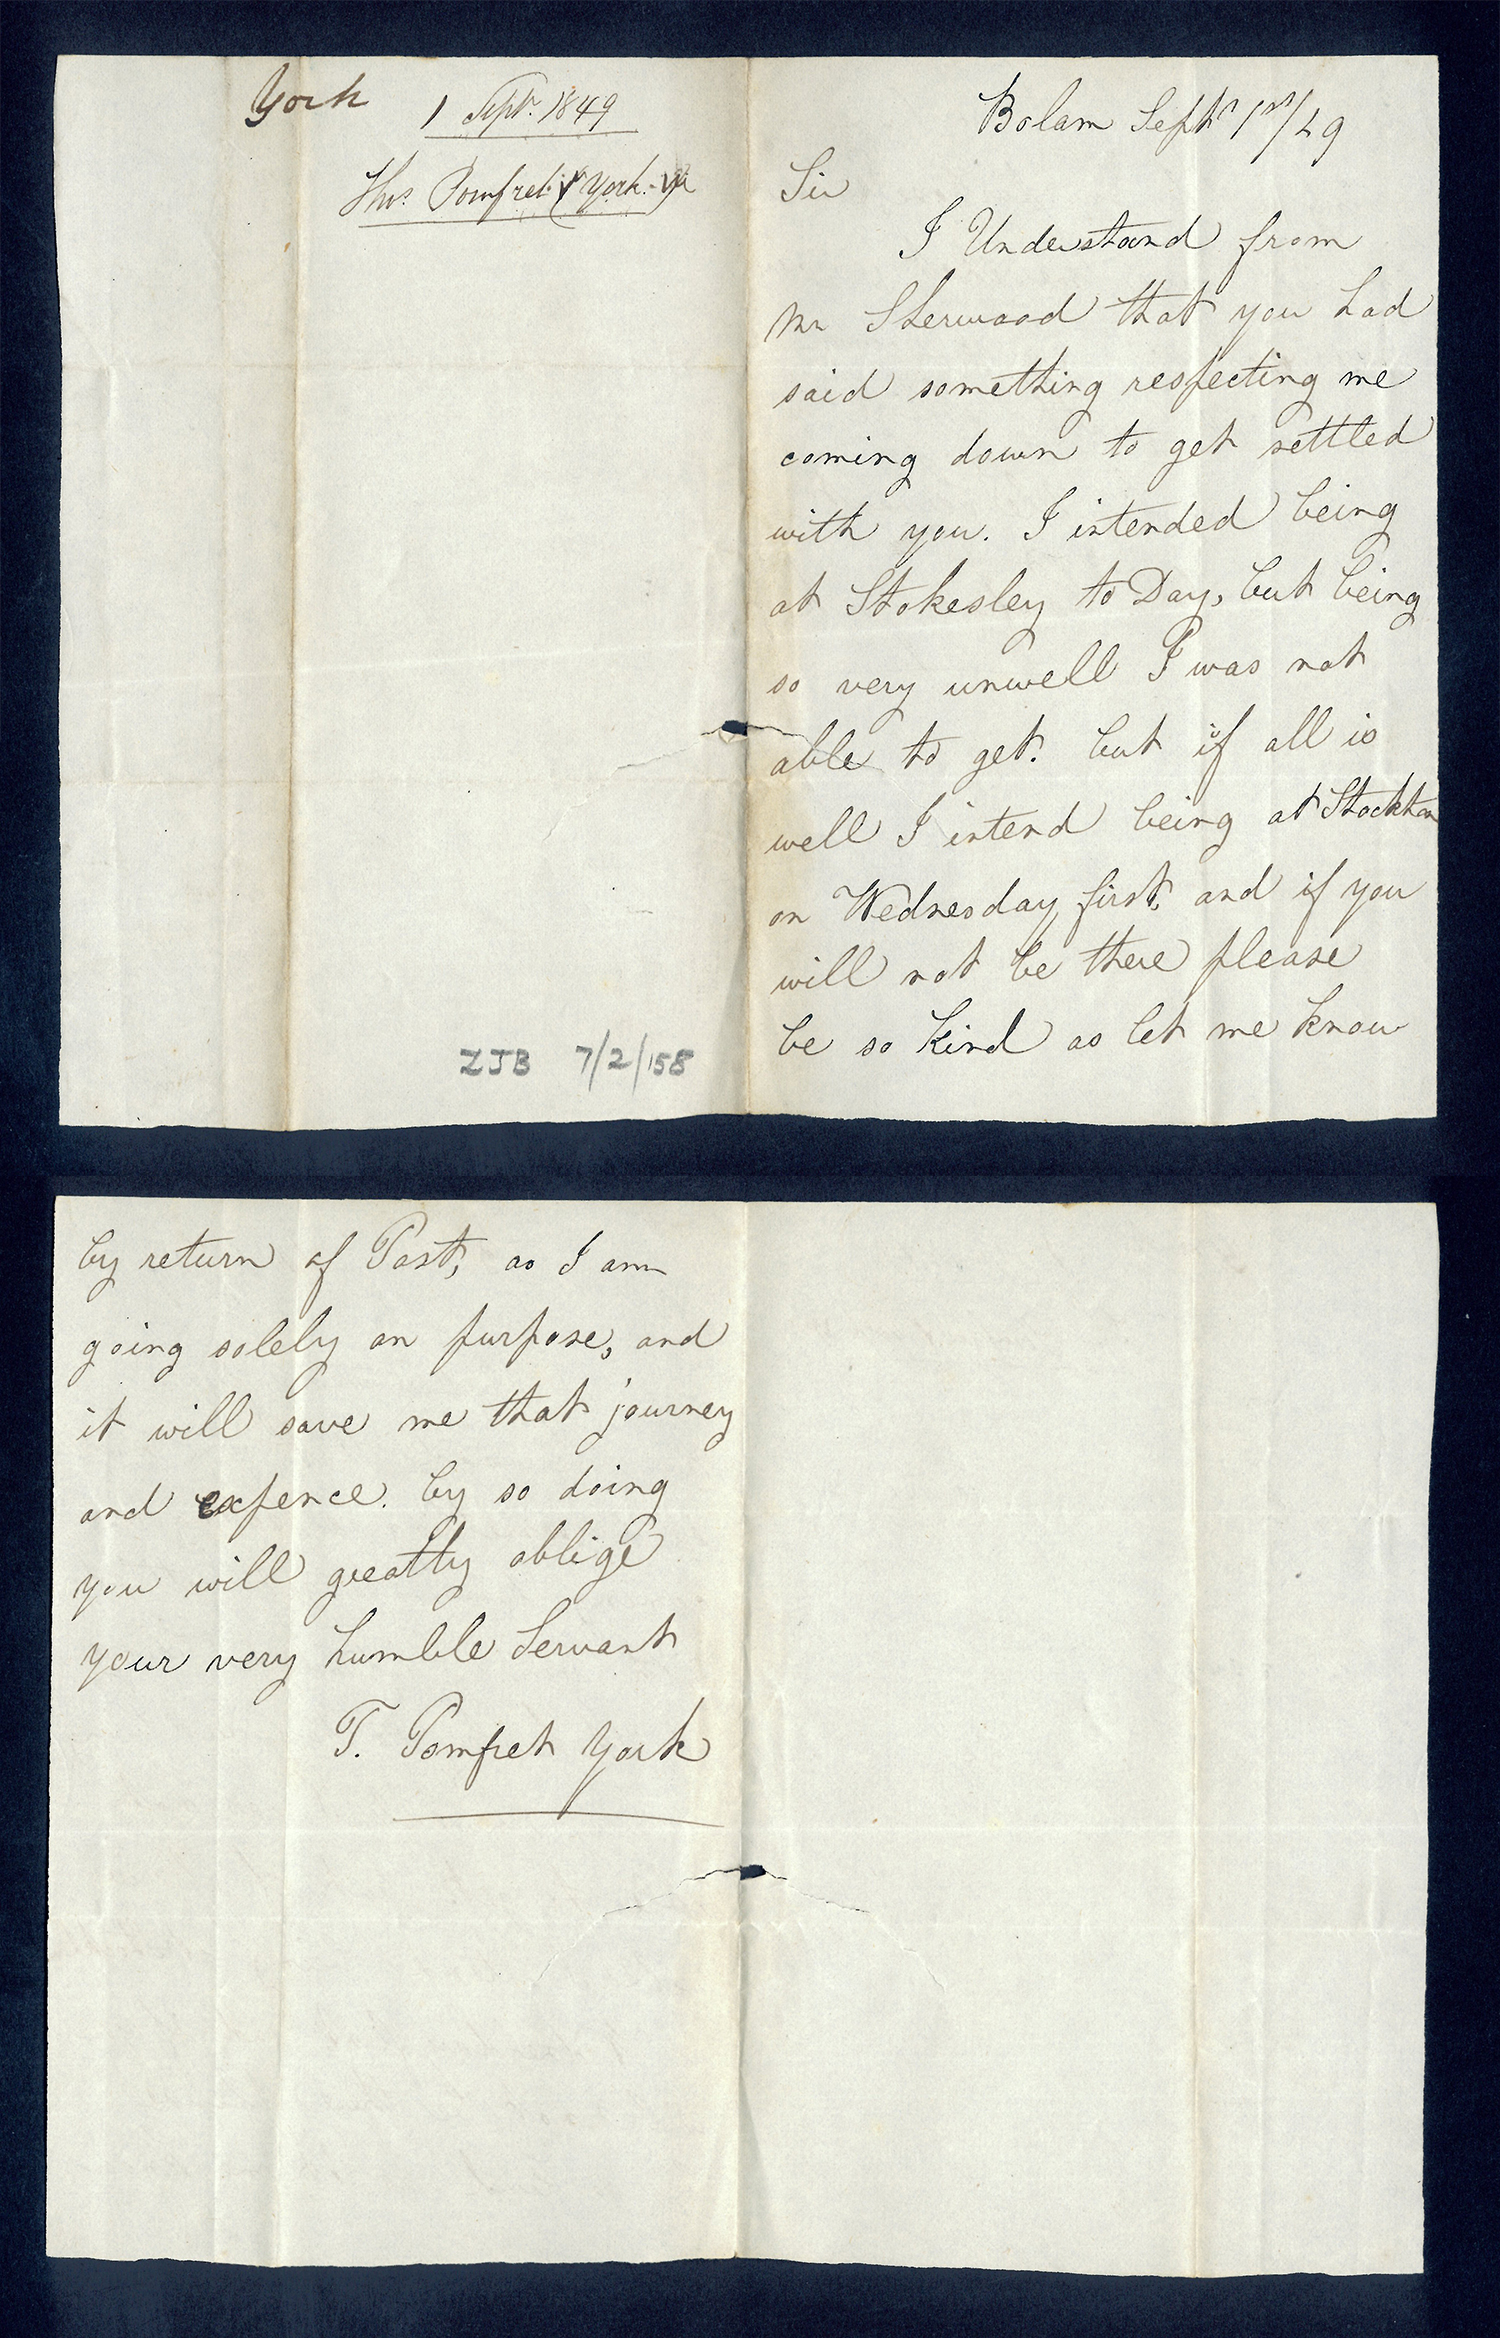 York
1 Septr. 1849
Thos. Pomfret York.
ZJB 7/2/158
Bolam Septr 1st/49
Sir
I Understand from
Mr Sherwood that you had
said something respecting me
coming down to get settled
with you. I intended being
at Stokesley to Day, but being
so very unwell I was not
able to get. but if all is
well I intend being at Stockton
on Wednesday first, and if you
will not be there please
be so kind as let me know
by return of Post, as I am
going solely on purpose, and
it will save me that journey
and expence. by so doing
you will greatly oblige
your very humble Servant
T. Pomfret York